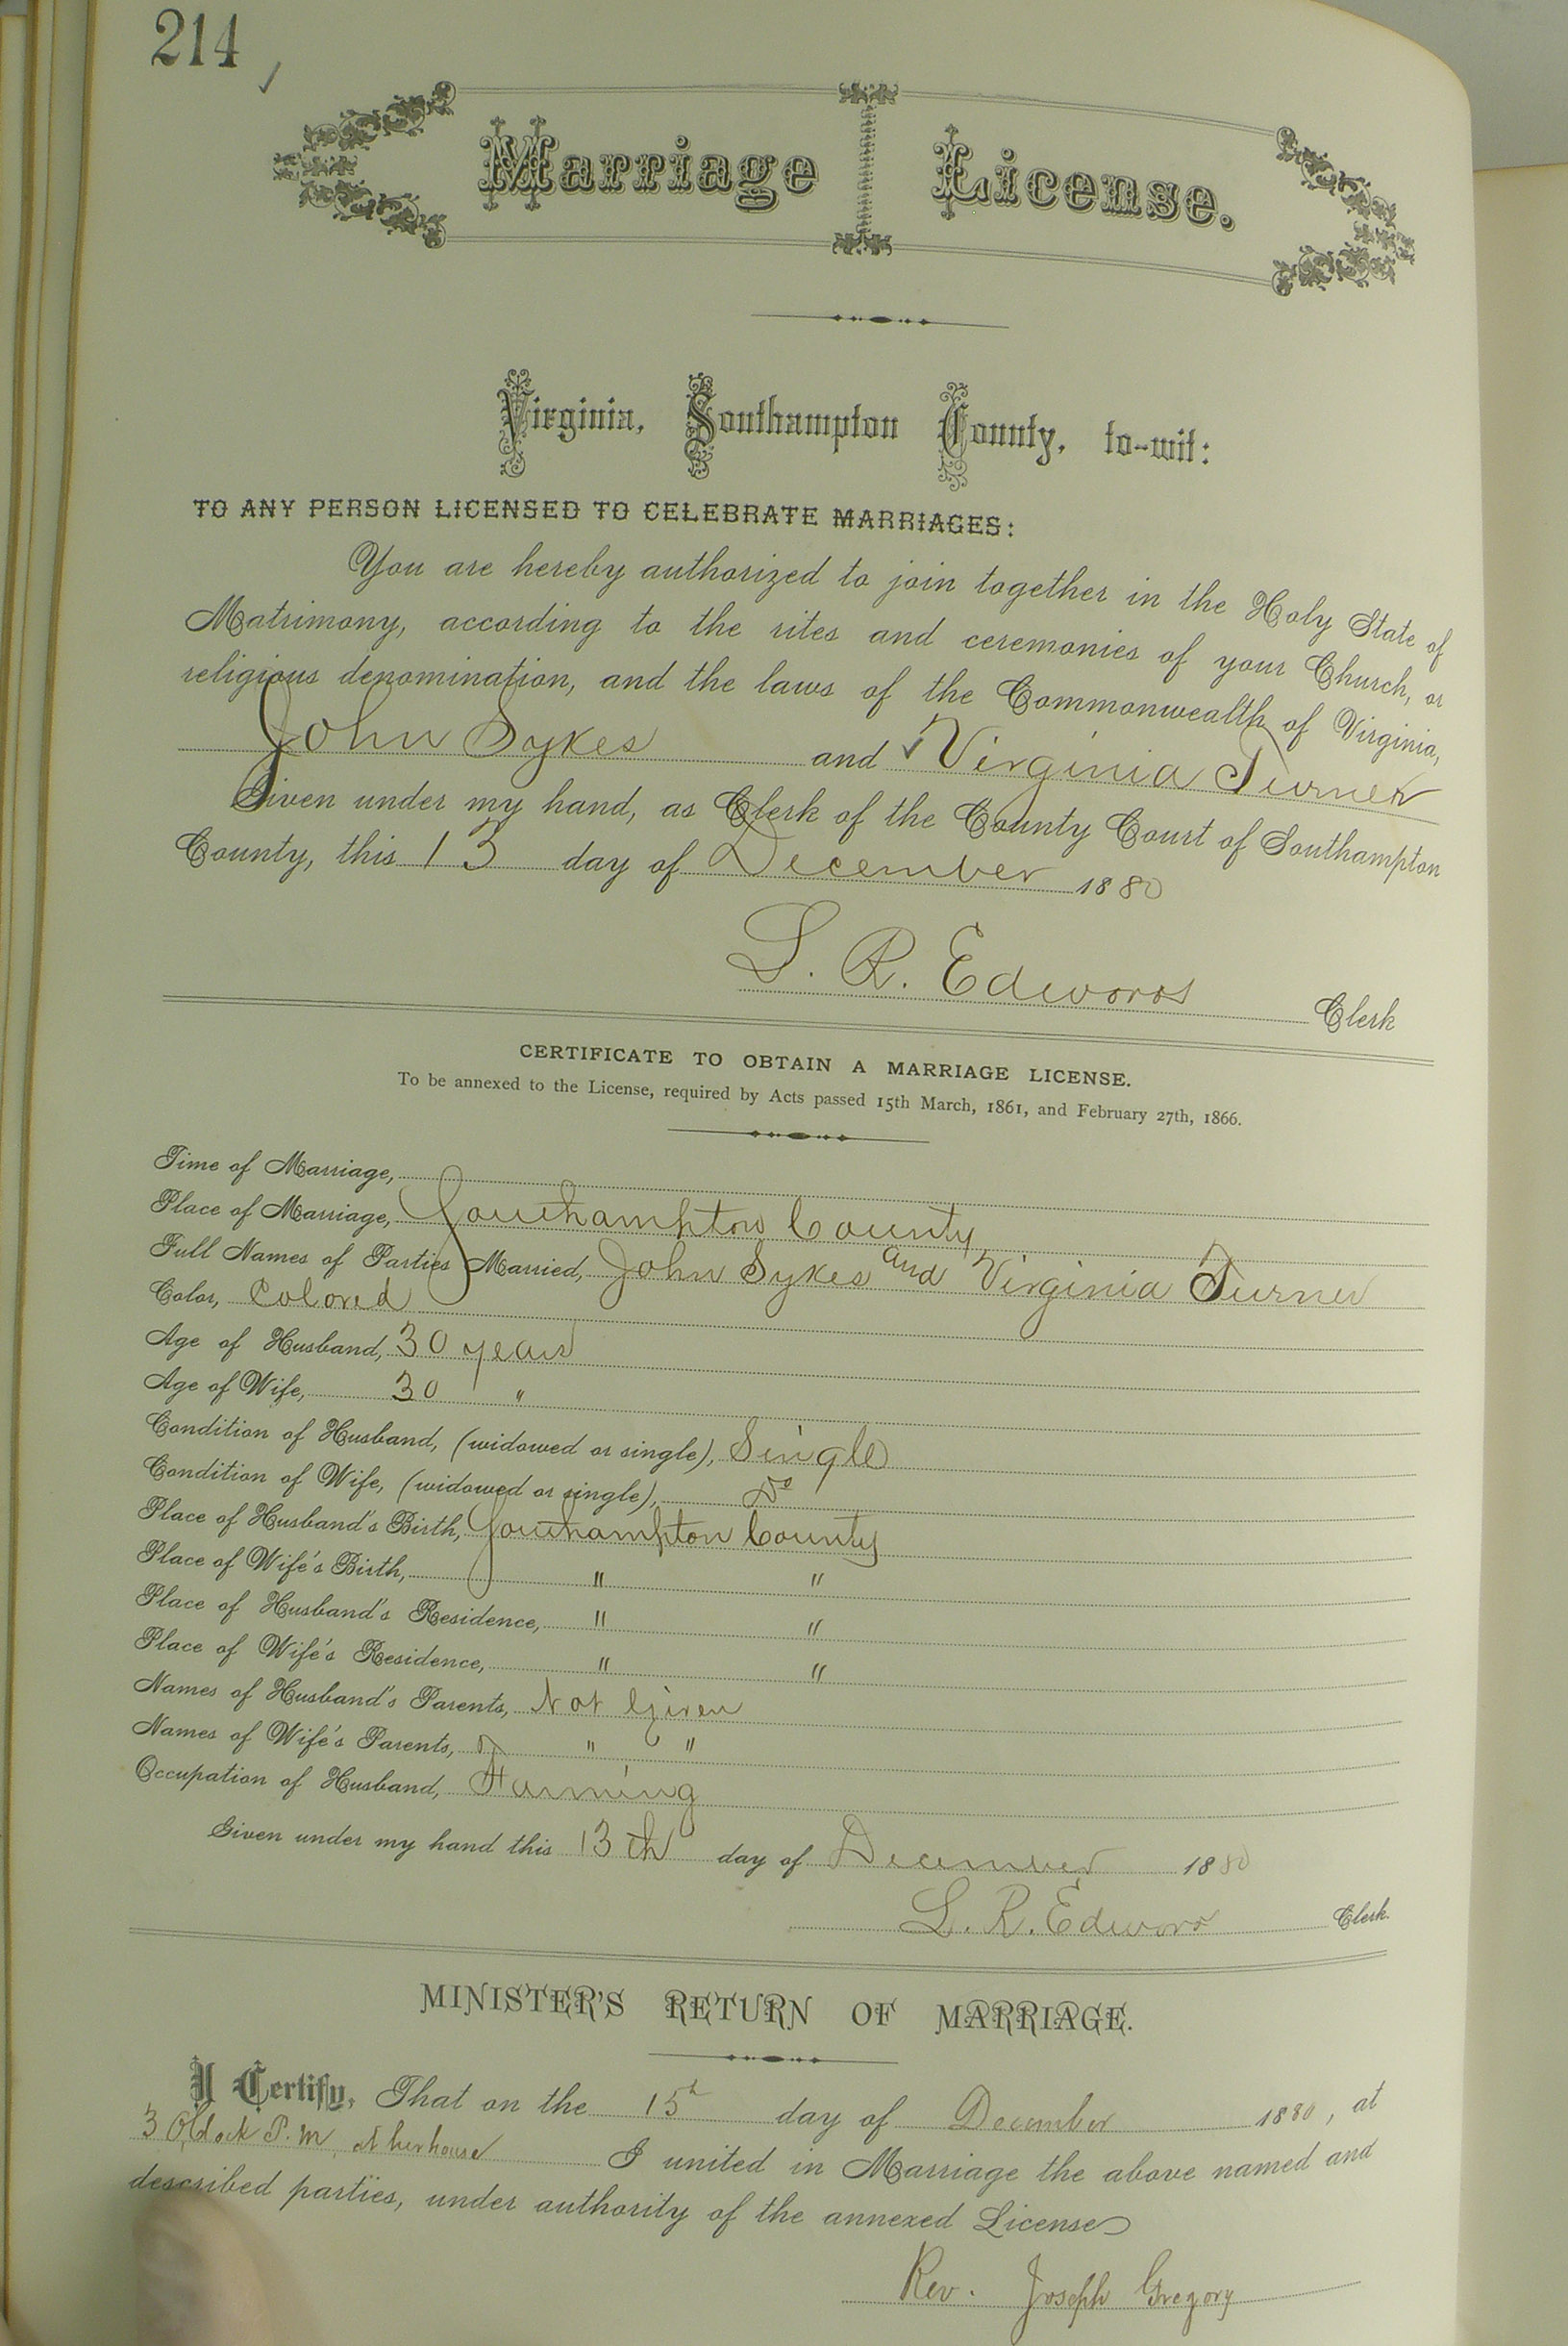 214
Marriage License.
Virginia, Southampton County, to-wit:
TO ANY PERSON LICENSED TO CELEBRATE MARRIAGES:
You are hereby authorized to join together in the Holy State of
Matrimony, according to the rites and ceremonies of your Church, or
religious denomination, and the laws of the Commonwealth of Virginia,
John Sykes and Virginia Turner
Given under my hand, as Clerk of the County Court of Southampton
County, this 13 day of December 1880
L. R. Edwards Clerk
CERTIFICATE TO OBTAIN A MARRIAGE LICENSE.
To be annexed to the License, required by Acts passed 15th March, 1861, and February 27th, 1866.
Time of Marriage,
Place of Marriage, Southampton County
Full Names of Parties Married, John Sykes and Virginia Turner
Color, Colored
Age of Husband, 30 years
Age of Wife, 30 "
Condition of Husband, (widowed or single), Single
Condition of Wife, (widowed or single), Do
Place of Husband's Birth, Southampton County
Place of Wife's Birth, " "
Place of Husband's Residence, " "
Place of Wife's Residence, " "
Names of Husband's Parents, Not Given
Names of Wife's Parents, " "
Occupation of Husband, Farming
Given under my hand this 13th day of December 1880
L. R. Edwards Clerk.
MINISTER'S RETURN OF MARRIAGE.
I Certify, That on the 15th day of December 1880, at
3 O'Clock P. M, at her house I united in Marriage the above named and
described parties, under authority of the annexed License
Rev. Joseph Gregory